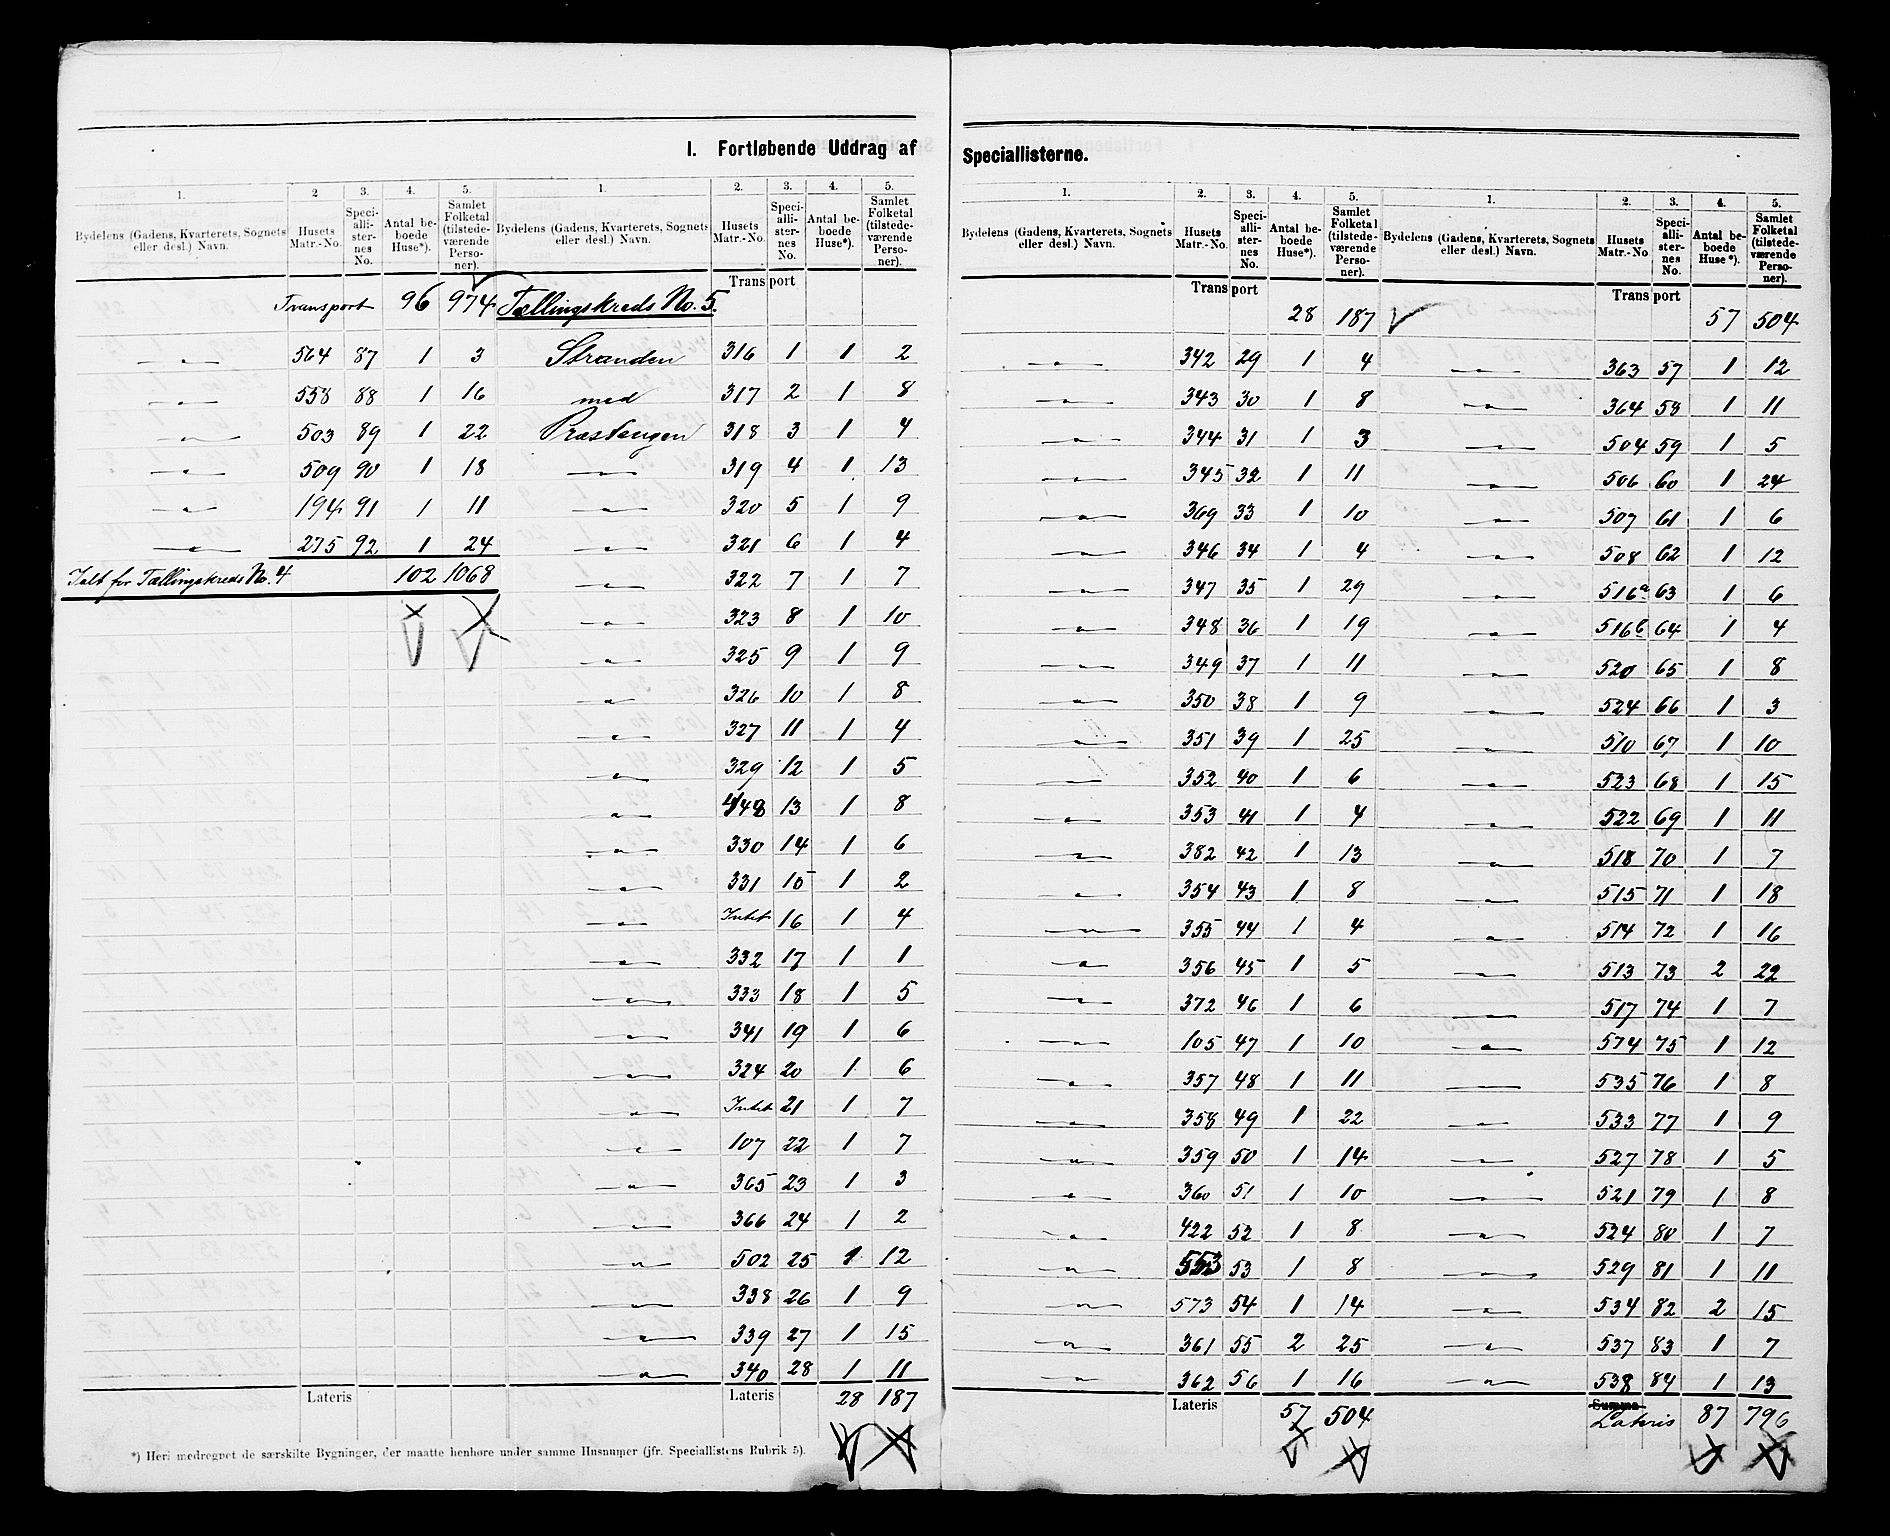 I. Fortløbende Uddrag af Speciallisterne.
1. 2 3. 4. 5.
Bydelens (Gadens, Kvarterets, Sognets eller desl.) Navn. Husets Matr.-No. Speciallisternes No. Antal beboede Huse*). Samlet Folketal (tilstedeværende Personer).
Transport 96 974
" 564 87 1 3
" 558 88 1 16
" 503 89 1 22
" 509 90 1 18
" 194 91 1 11
" 275 92 1 24
Ialt for Tællingskreds No. 4 102 1068
Lateris
1. 2. 3. 4. 5.
Bydelens (Gadens, Kvarterets, Sognets eller desl.) Navn. Husets Matr.-No. Speciallisternes No. Antal beboede Huse*). Samlet Folketal (tilstedeværende Personer).
Transport
Tællingskreds No. 5.
Stranden 316 1 1 2
med 317 2 1 8
Præstangen 318 3 1 4
" 319 4 1 13
" 320 5 1 9
" 321 6 1 4
" 322 7 1 7
" 323 8 1 10
" 325 9 1 9
" 326 10 1 8
" 327 11 1 4
" 329 12 1 5
" 448 13 1 8
" 330 14 1 6
" 331 15 1 2
" Intet 16 1 4
" 332 17 1 1
" 333 18 1 5
" 341 19 1 6
" 324 20 1 6
" Intet 21 1 7
" 107 22 1 7
" 365 23 1 3
" 366 24 1 2
" 502 25 1 12
" 338 26 1 9
" 339 27 1 15
" 340 28 1 11
Lateris 28 187
*) Heri medregnet de særskilte Bygninger, der maatte henhøre under samme Husnumer (jfr. Speciallistens Rubrik 5).
1. 2. 3. 4. 5.
Bydelens (Gadens, Kvarterets, Sognets eller desl.) Navn. Husets Matr.-No. Speciallisternes No. Antal beboede Huse*). Samlet Folketal (tilstedeværende Personer).
Transport
28 187
" 342 29 1 4
" 343 30 1 8
" 344 31 1 3
" 345 32 1 11
" 369 33 1 10
" 346 34 1 4
" 347 35 1 29
" 348 36 1 19
" 349 37 1 11
" 350 38 1 9
" 351 39 1 25
" 352 40 1 6
" 353 41 1 4
" 382 42 1 13
" 354 43 1 8
" 355 44 1 4
" 356 45 1 5
" 372 46 1 6
" 105 47 1 10
" 357 48 1 11
" 358 49 1 22
" 359 50 1 14
" 360 51 1 10
" 422 52 1 8
" 553 53 1 8
" 573 54 1 14
" 361 55 2 25
" 362 56 1 16
Lateris 57 504
1. 2. 3. 4. 5.
Bydelens (Gadens, Kvarterets, Sognets eller desl.) Navn. Husets Matr.-No Speciallisternes No. Antal beboede Huse*). Samlet Folketal (tilstedeværende Personer).
Transport
57 504
" 363 57 1 12
" 364 58 1 11
" 504 59 1 5
" 506 60 1 24
" 507 61 1 6
" 508 62 1 12
" 516a 63 1 6
" 516b 64 1 4
" 520 65 1 8
" 524 66 1 3
" 510 67 1 10
" 523 68 1 15
" 522 69 1 11
" 518 70 1 7
" 515 71 1 18
" 514 72 1 16
" 513 73 2 22
" 517 74 1 7
" 574 75 1 12
" 535 76 1 8
" 533 77 1 9
" 527 78 1 5
" 521 79 1 8
" 524 80 1 7
" 529 81 1 11
" 534 82 2 15
" 537 83 1 7
" 538 84 1 13
Summa
Lateris 87 796